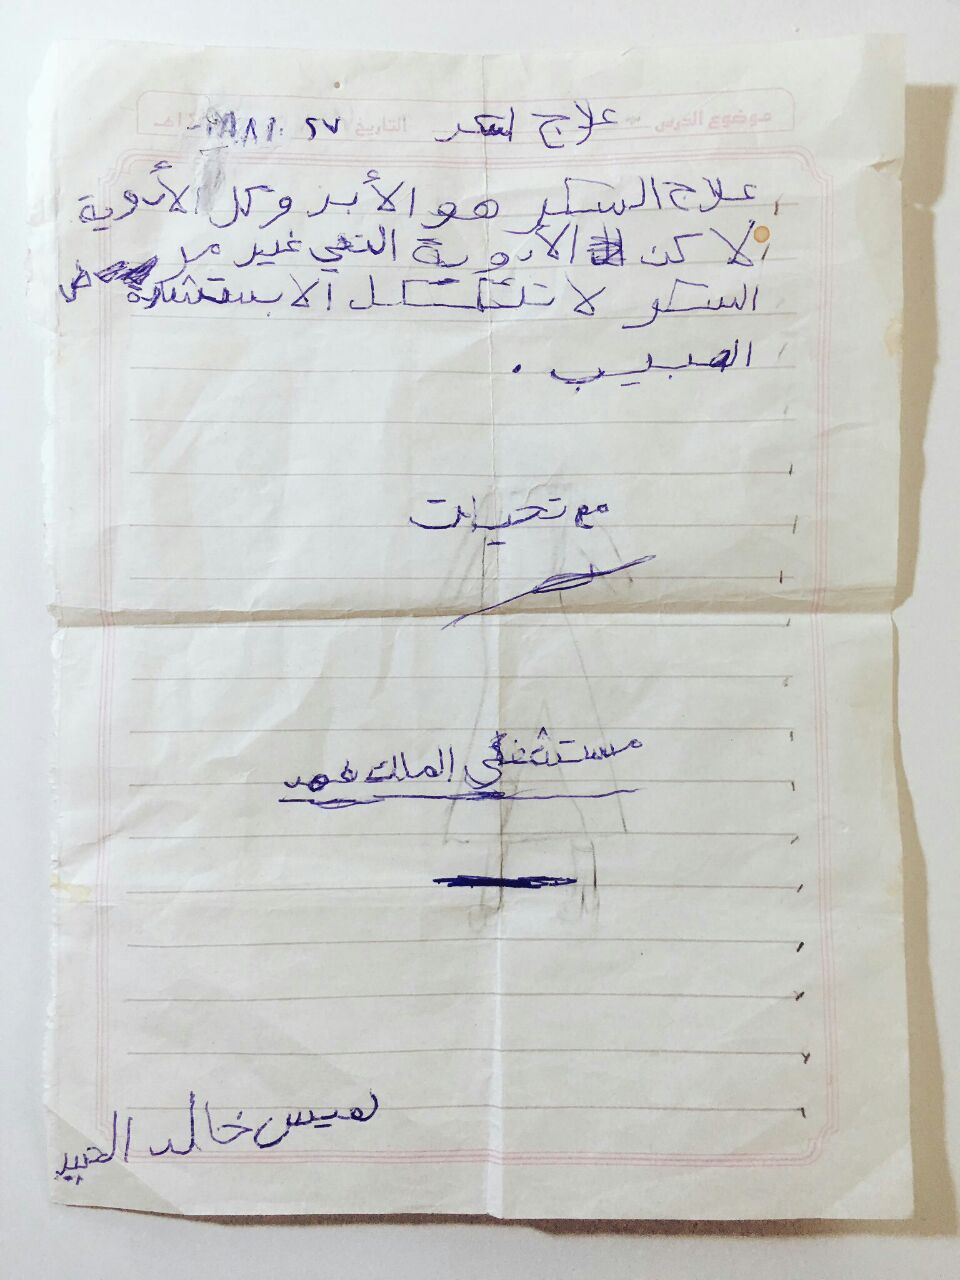 موضوع الدرس علاج السكر التاريخ
علاج السكر هو الأبر وكل الأدوية
لا كن الأدوية التي غير مرض
السكر لا تتكل الا بستشارة
الطبيب .
مع تحيات
مستشفى الملك فهد
لميس خالد